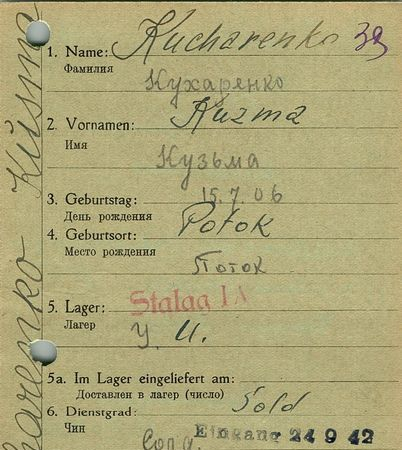 1. Name: Kucharenko 39
Фамилия
Кухаренко
2. Vornamen: Kuzma
Имя
Кузьма
3. Geburtstag: 15.7.06
День рождения
4. Geburtsort: Potok
Место рождения
Поток
5. Lager: Stalag IA
Лагер У. U.
5a. Im Lager eingeliefert am:
Доставлен в лагер (число)
6. Dienstgrad: Sold
Чин Eingang 24 9 42